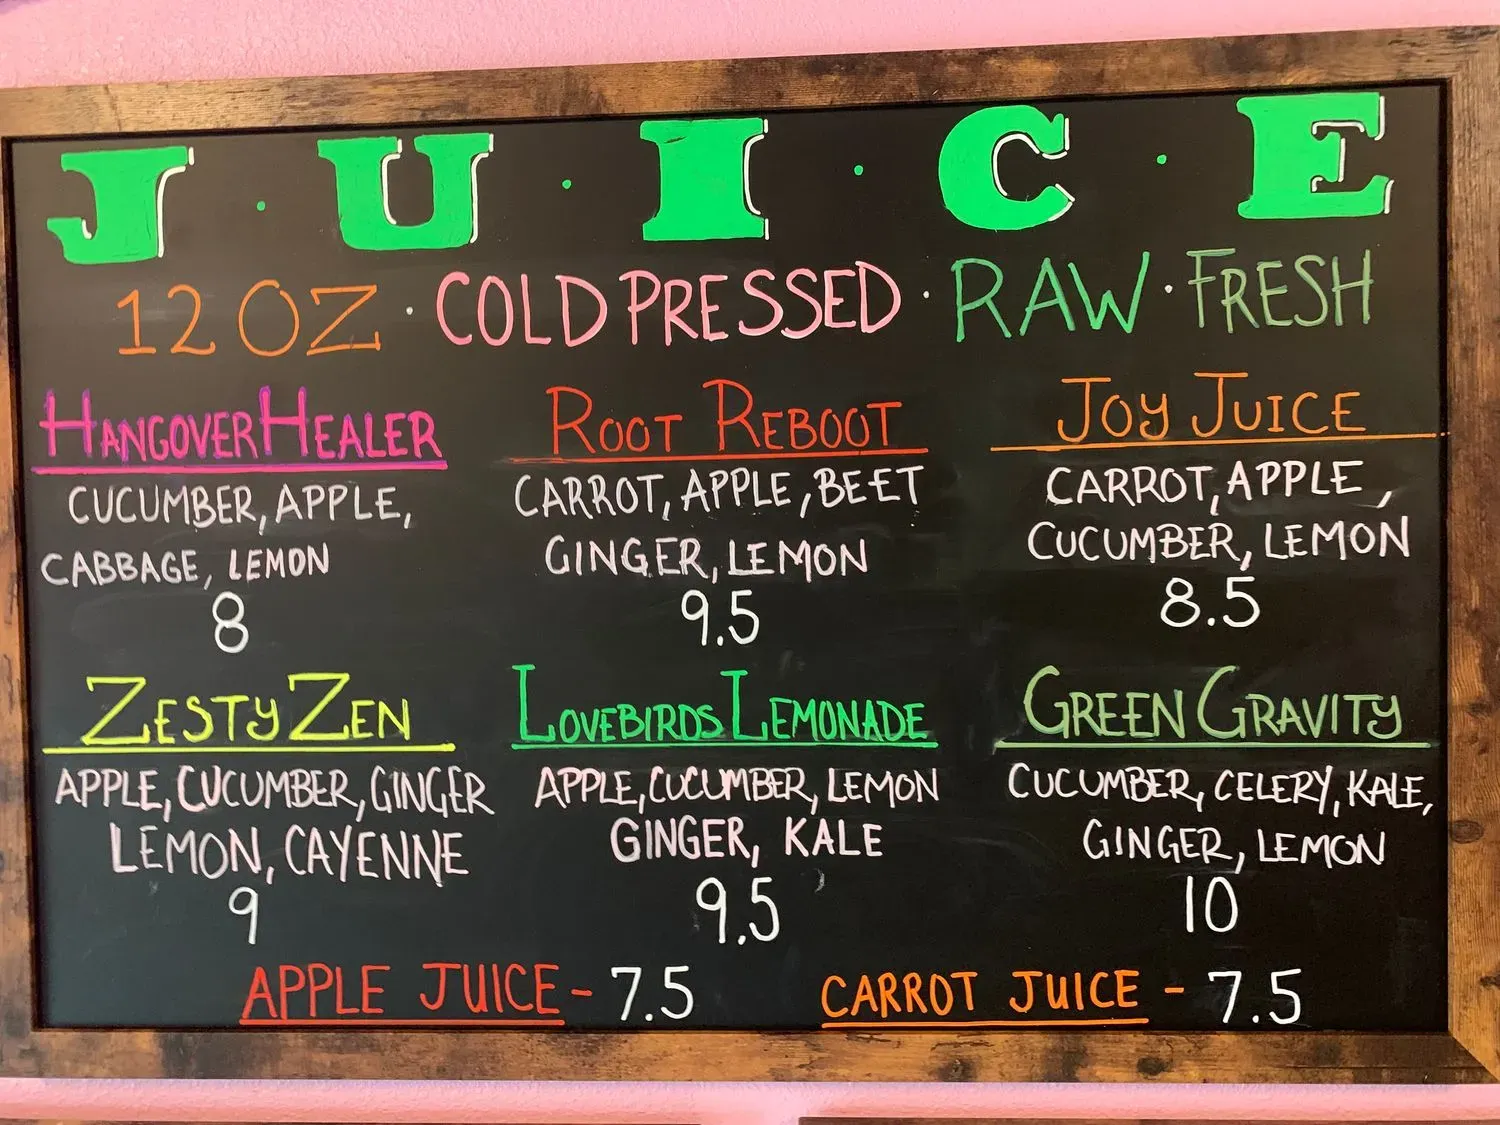 J · U · I · C · E
12 OZ · COLD PRESSED · RAW · FRESH
HANGOVER HEALER
CUCUMBER, APPLE,
CABBAGE, LEMON
8
ROOT REBOOT
CARROT, APPLE, BEET
GINGER, LEMON
9.5
JOY JUICE
CARROT, APPLE,
CUCUMBER, LEMON
8.5
ZESTY ZEN
APPLE, CUCUMBER, GINGER
LEMON, CAYENNE
9
LOVEBIRDS LEMONADE
APPLE, CUCUMBER, LEMON
GINGER, KALE
9.5
GREEN GRAVITY
CUCUMBER, CELERY, KALE,
GINGER, LEMON
10
APPLE JUICE - 7.5
CARROT JUICE - 7.5